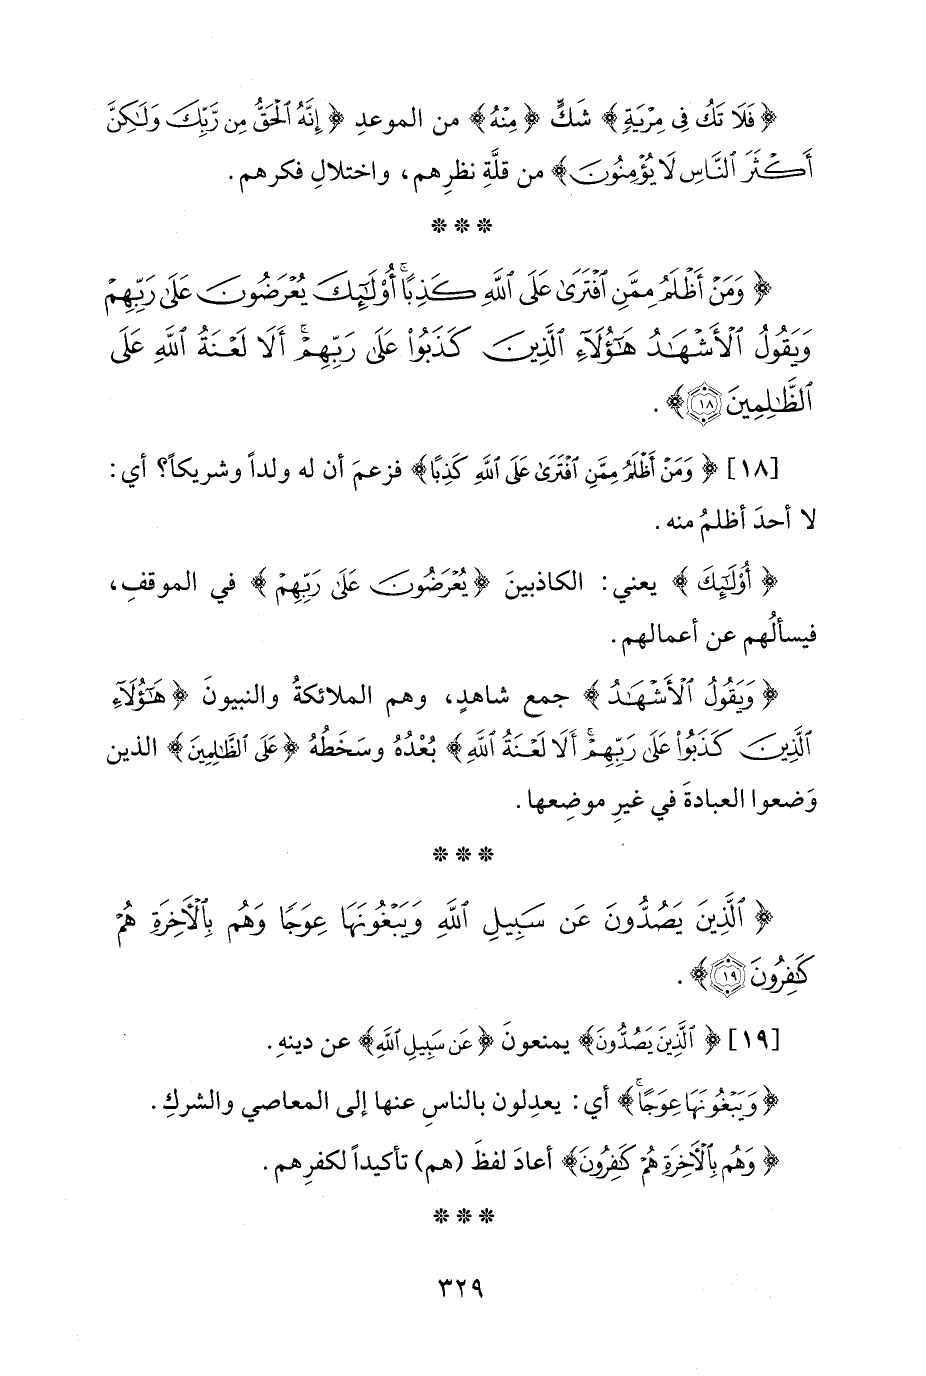 ﴿ فَلَا تَكُ فِى مِرْيَةٍ ﴾ شَكٍّ ﴿ مِنْهُ ﴾ من الموعدِ ﴿ إِنَّهُ ٱلْحَقُّ مِن رَّبِّكَ وَلَٰكِنَّ
أَكْثَرَ ٱلنَّاسِ لَا يُؤْمِنُونَ ﴾ من قلَّةِ نظرِهم، واختلالِ فكرهم.
* * *
﴿ وَمَنْ أَظْلَمُ مِمَّنِ ٱفْتَرَىٰ عَلَى ٱللَّهِ كَذِبًا ۚ أُوْلَٰٓئِكَ يُعْرَضُونَ عَلَىٰ رَبِّهِمْ
وَيَقُولُ ٱلْأَشْهَٰدُ هَٰٓؤُلَآءِ ٱلَّذِينَ كَذَبُوا۟ عَلَىٰ رَبِّهِمْ ۚ أَلَا لَعْنَةُ ٱللَّهِ عَلَى
ٱلظَّٰلِمِينَ ١٨ ﴾ .
[١٨] ﴿ وَمَنْ أَظْلَمُ مِمَّنِ ٱفْتَرَىٰ عَلَى ٱللَّهِ كَذِبًا ﴾ فزعمَ أن له ولداً وشريكاً؟ أي:
لا أحدَ أظلمُ منه .
﴿ أُوْلَٰٓئِكَ ﴾ يعني: الكاذبينَ ﴿ يُعْرَضُونَ عَلَىٰ رَبِّهِمْ ﴾ في الموقفِ،
فيسألُهم عن أعمالهم.
﴿ وَيَقُولُ ٱلْأَشْهَٰدُ ﴾ جمع شاهدٍ، وهم الملائكةُ والنبيونَ ﴿ هَٰٓؤُلَآءِ
ٱلَّذِينَ كَذَبُوا۟ عَلَىٰ رَبِّهِمْ ۚ أَلَا لَعْنَةُ ٱللَّهِ ﴾ بُعْدُهُ وسَخَطُهُ ﴿ عَلَى ٱلظَّٰلِمِينَ ﴾ الذين
وَضعوا العبادةَ في غيرِ موضِعها.
* * *
﴿ ٱلَّذِينَ يَصُدُّونَ عَن سَبِيلِ ٱللَّهِ وَيَبْغُونَهَا عِوَجًا وَهُم بِٱلْأَخِرَةِ هُمْ
كَٰفِرُونَ ١٩ ﴾ .
[١٩] ﴿ ٱلَّذِينَ يَصُدُّونَ ﴾ يمنعونَ ﴿ عَن سَبِيلِ ٱللَّهِ ﴾ عن دينهِ.
﴿ وَيَبْغُونَهَا عِوَجًا ۚ ﴾ أي: يعدِلون بالناسِ عنها إلى المعاصي والشركِ.
﴿ وَهُم بِٱلْأَخِرَةِ هُمْ كَٰفِرُونَ ﴾ أعادَ لفظَ (هم) تأكيداً لكفرِهم.
* * *
٣٢٩